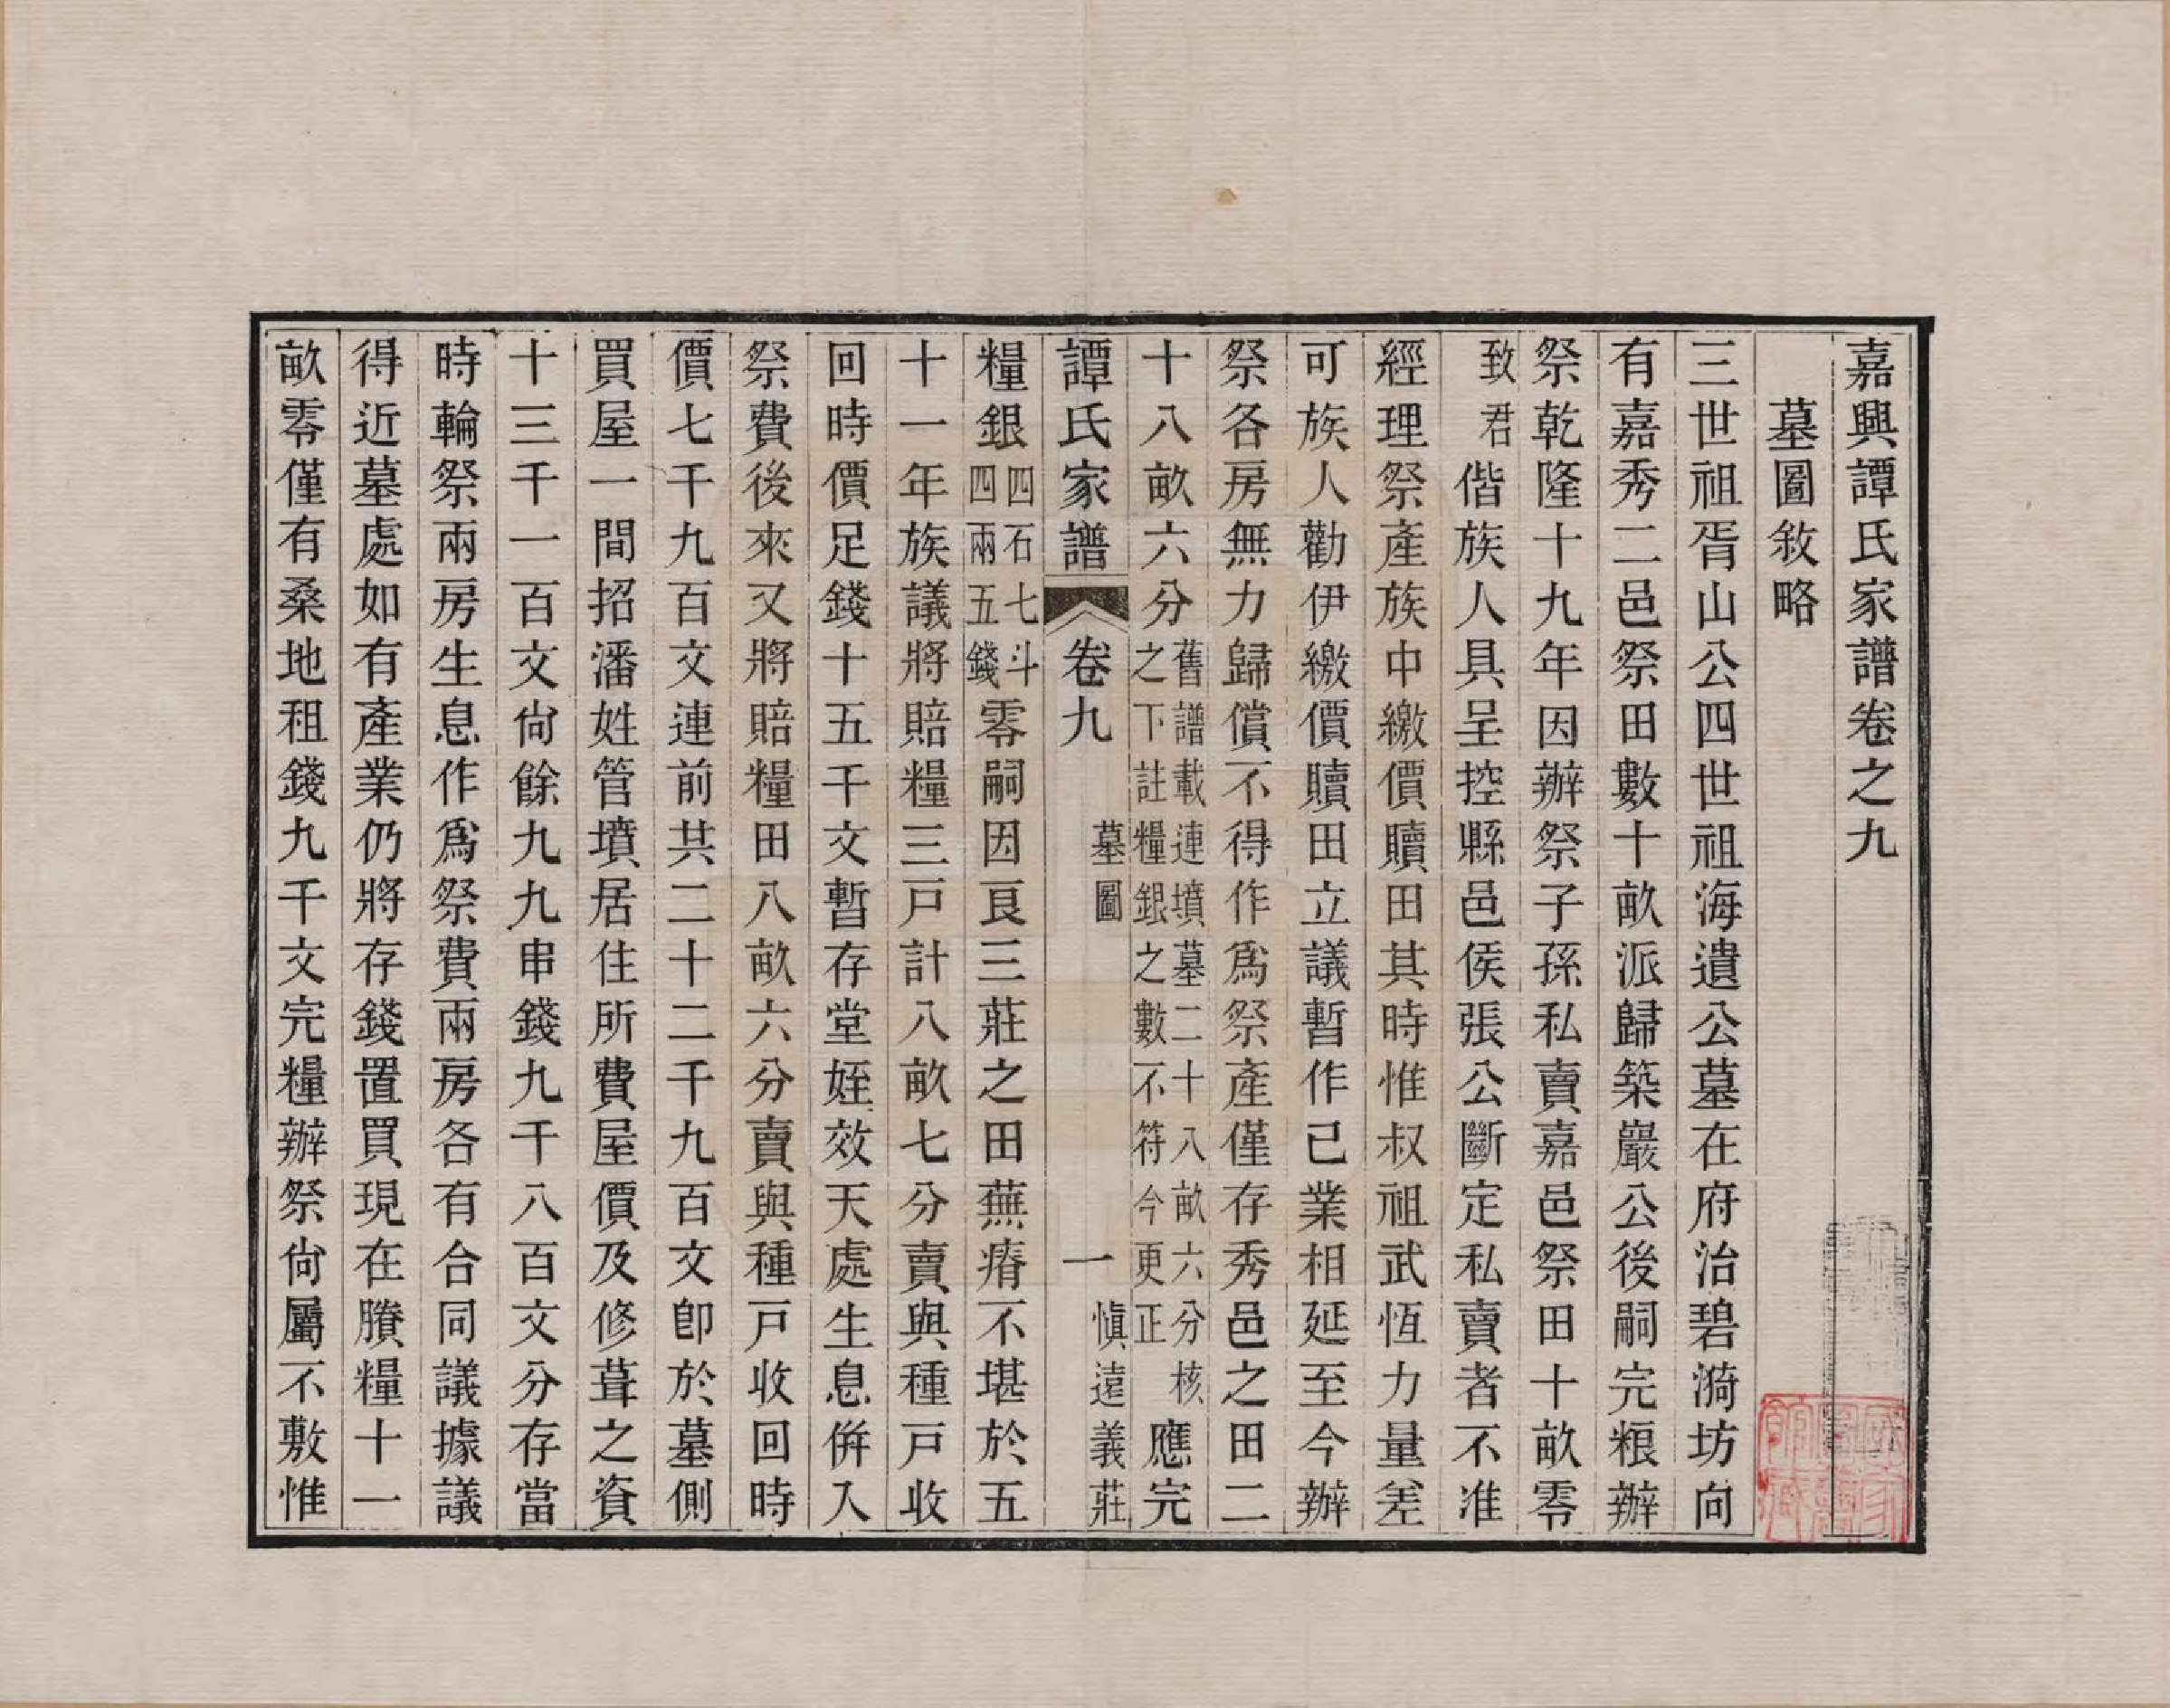 嘉興譚氏家譜卷之九
墓圖敘略
三世祖胥山公四世祖海遺公墓在府治碧漪坊向
有嘉秀二邑祭田數十畝派歸築巖公後嗣完粮辦
祭乾隆十九年因辦祭子孫私賣嘉邑祭田十畝零
致君偕族人具呈控縣邑侯張公斷定私賣者不准
經理祭產族中繳價贖田其時惟叔祖武恆力量差
可族人勸伊繳價贖田立議暫作己業相延至今辦
祭各房無力歸償不得作為祭產僅存秀邑之田二
十八畝六分舊譜載連墳墓二十八畝六分核之下註糧銀之數不符今更正應完
譚氏家譜 卷九 墓圖 一 愼遠義莊
糧銀四石七斗四兩五錢零嗣因良三莊之田蕪瘠不堪於五
十一年族議將賠糧三戸計八畝七分賣與種戸收
回時價足錢十五千文暫存堂姪效天處生息併入
祭費後來又將賠糧田八畝六分賣與種戸收回時
價七千九百文連前共二十二千九百文卽於墓側
買屋一間招潘姓管墳居住所費屋價及修葺之資
十三千一百文尙餘九九串錢九千八百文分存當
時輪祭兩房生息作爲祭費兩房各有合同議據議
得近墓處如有產業仍將存錢置買現在賸糧十一
畝零僅有桑地租錢九千文完糧辦祭尙屬不敷惟